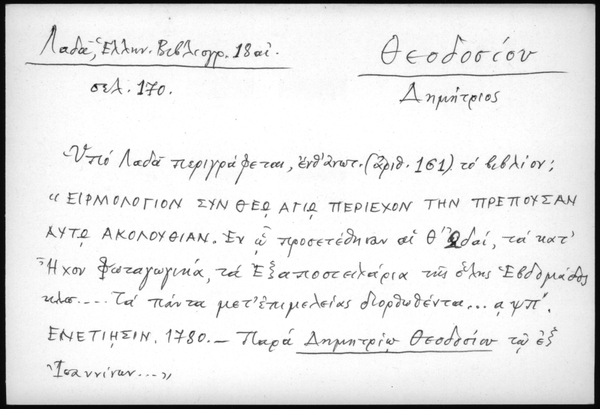 Λαδᾶ, Ἑλλην. Βιβλιογρ. 18 αἰ.
Θεοδοσίου
σελ. 170.
Δημήτριος
Ὑπό Λαδᾶ περιγράφεται, ἔνθ' ἀνωτ. (ἀριθ. 161) τό βιβλίον;
“ΕΙΡΜΟΛΟΓΙΟΝ ΣΥΝ ΘΕῼ ΑΓΙῼ ΠΕΡΙΕΧΟΝ ΤΗΝ ΠΡΕΠΟΥΣΑΝ
ΑΥΤῼ ΑΚΟΛΟΥΘΙΑΝ. Ἐν ᾧ προσετέθησαν αἱ θ' ᾠδαί, τά κατ'
Ἦχον φωταγωγικά, τά Ἐξαποστειλάρια τῆς ὅλης Ἑβδομάδος
κλπ.... Τά πάντα μετ' ἐπιμελείας διορθωθέντα... αψπ'.
ΕΝΕΤΙΗΣΙΝ. 1780. — Παρά Δημητρίῳ Θεοδοσίου τῷ ἐξ
Ἰωαννίνων...„